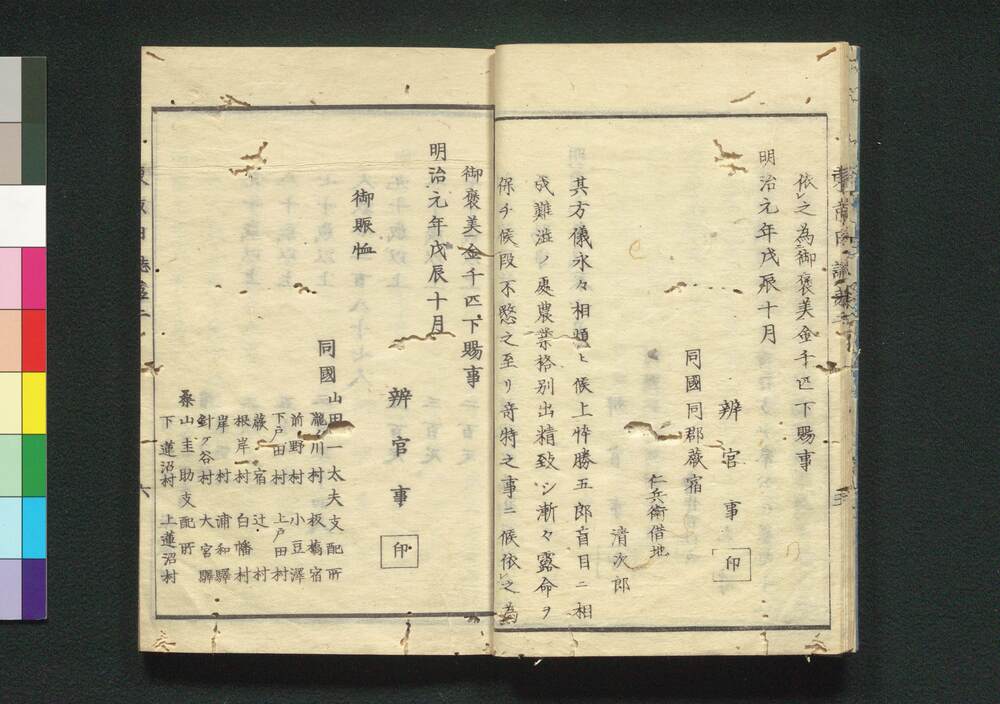 依之為御褒美金千匹下賜事
明治元年戊辰十月
辨官事 印
同國同郡蕨宿
仁兵衛借地
清次郎
其方儀永々相煩ヒ候上悴勝五郎盲目ニ相
成難澁ノ處農業格別出精致シ漸々露命ヲ
保チ候段不愍之至リ奇特之事ニ候依之為
御褒美金千匹下賜事
明治元年戊辰十月
辨官事 印
御賑恤
同國山田一太夫支配所
瀧ノ川村 板橋宿
前野村 小豆澤
下戸田村 上戸田村
蕨宿 辻村
根岸村 白幡村
岸村 浦和驛
針ケ谷村 大宮驛
桑山圭助支配所
下蓮沼村 上蓮沼村